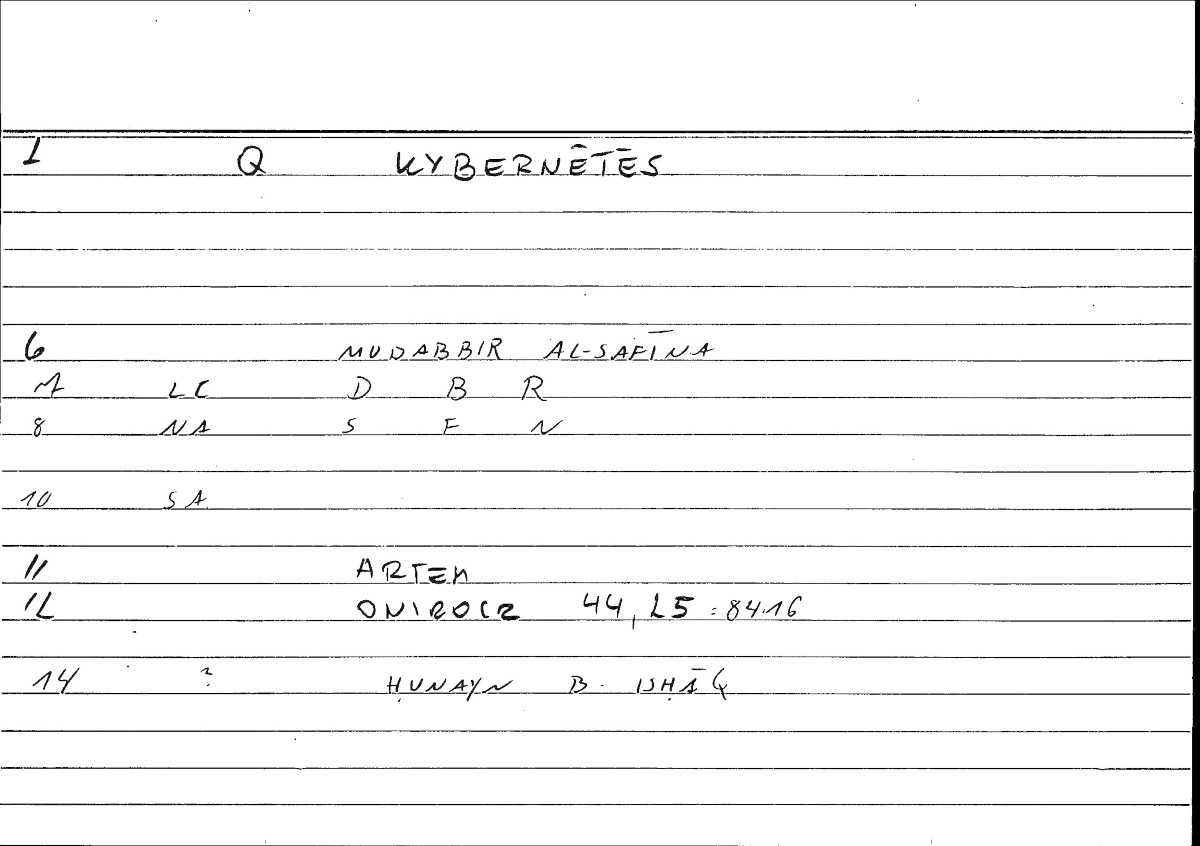 1 Q KYBERNĒTĒS
6 MUDABBIR AL-SAFĪNA
7 LC D B R
8 NA S F N
10 SA
11 ARTEM
12 ONIROCR 44, 25 : 84.16
14 ? ḤUNAYN B. ISḤĀQ